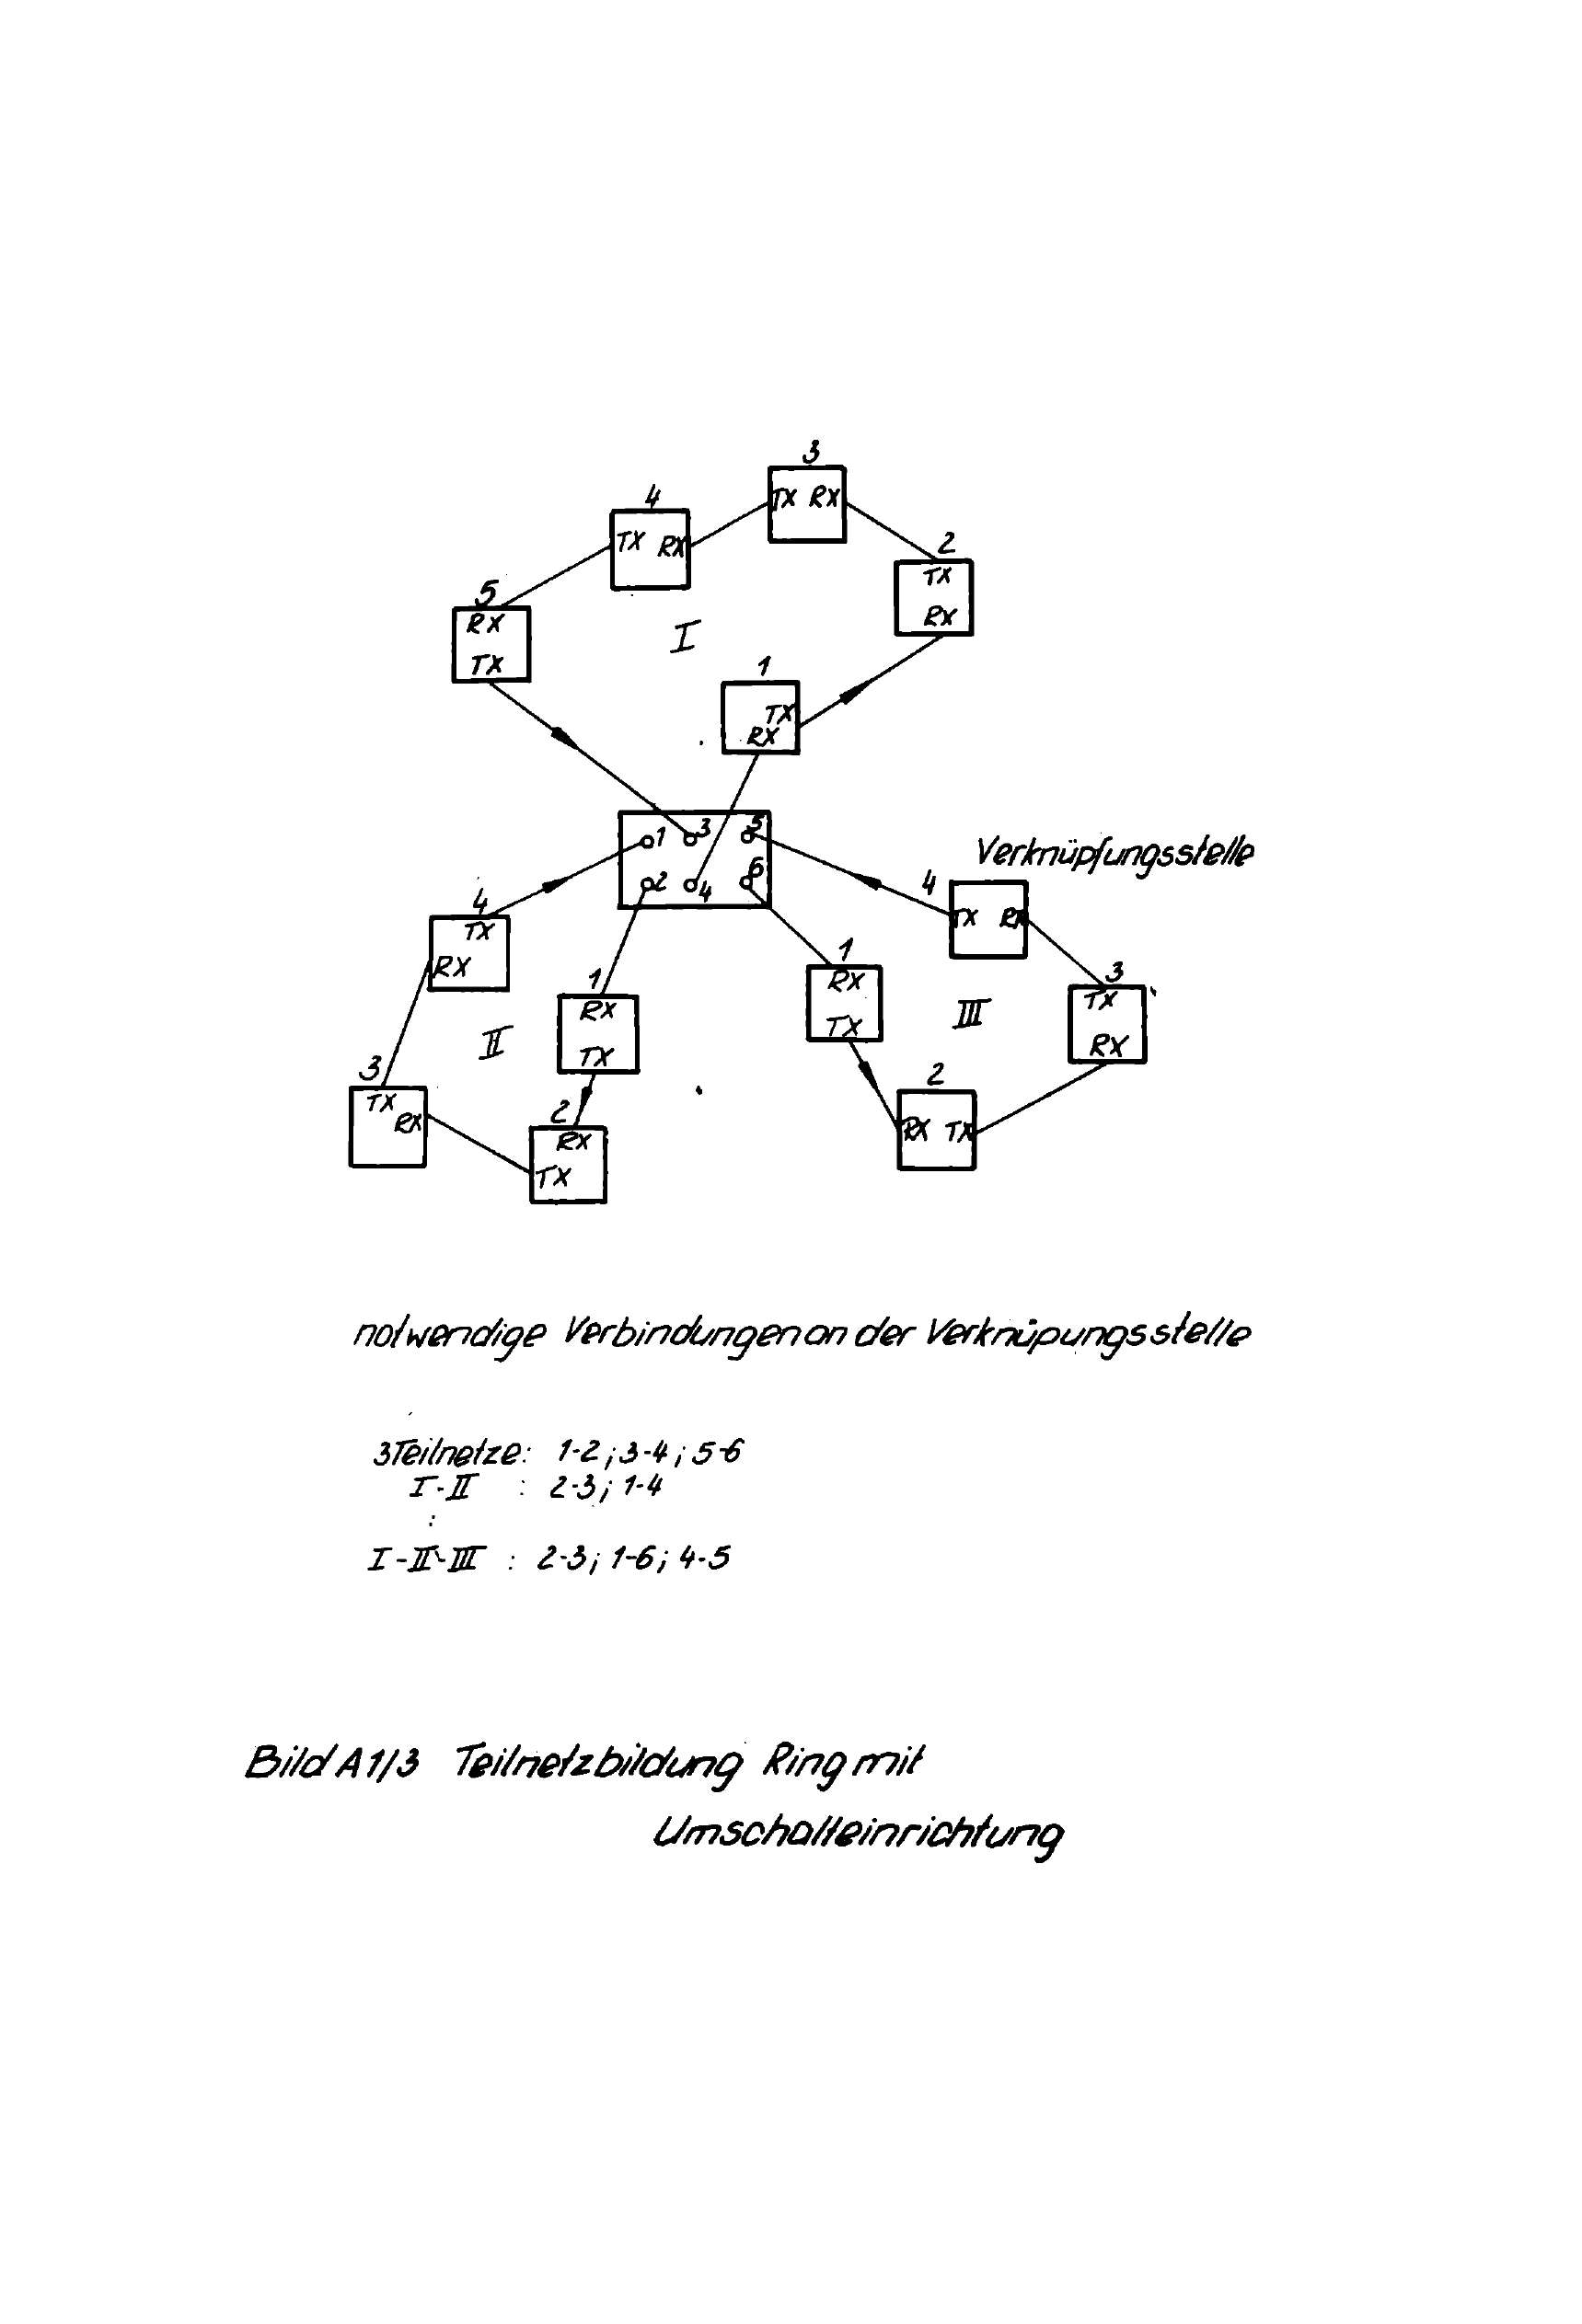 3
TX RX
4
TX RX
2
TX
RX
5
RX
TX
I
1
TX
RX
1 3 5
2 4 6
Verknüpfungsstelle
4
TX RX
4
TX
RX
1
RX
TX
1
RX
TX
III
3
TX
RX
II
3
TX
RX
2
RX
TX
2
RX TX
notwendige Verbindungen an der Verknüpungsstelle
3Teilnetze: 1-2; 3-4; 5-6
I-II : 2-3; 1-4
:
I-II-III : 2-3; 1-6; 4-5
Bild A1/3 Teilnetzbildung Ring mit
Umschalteinrichtung